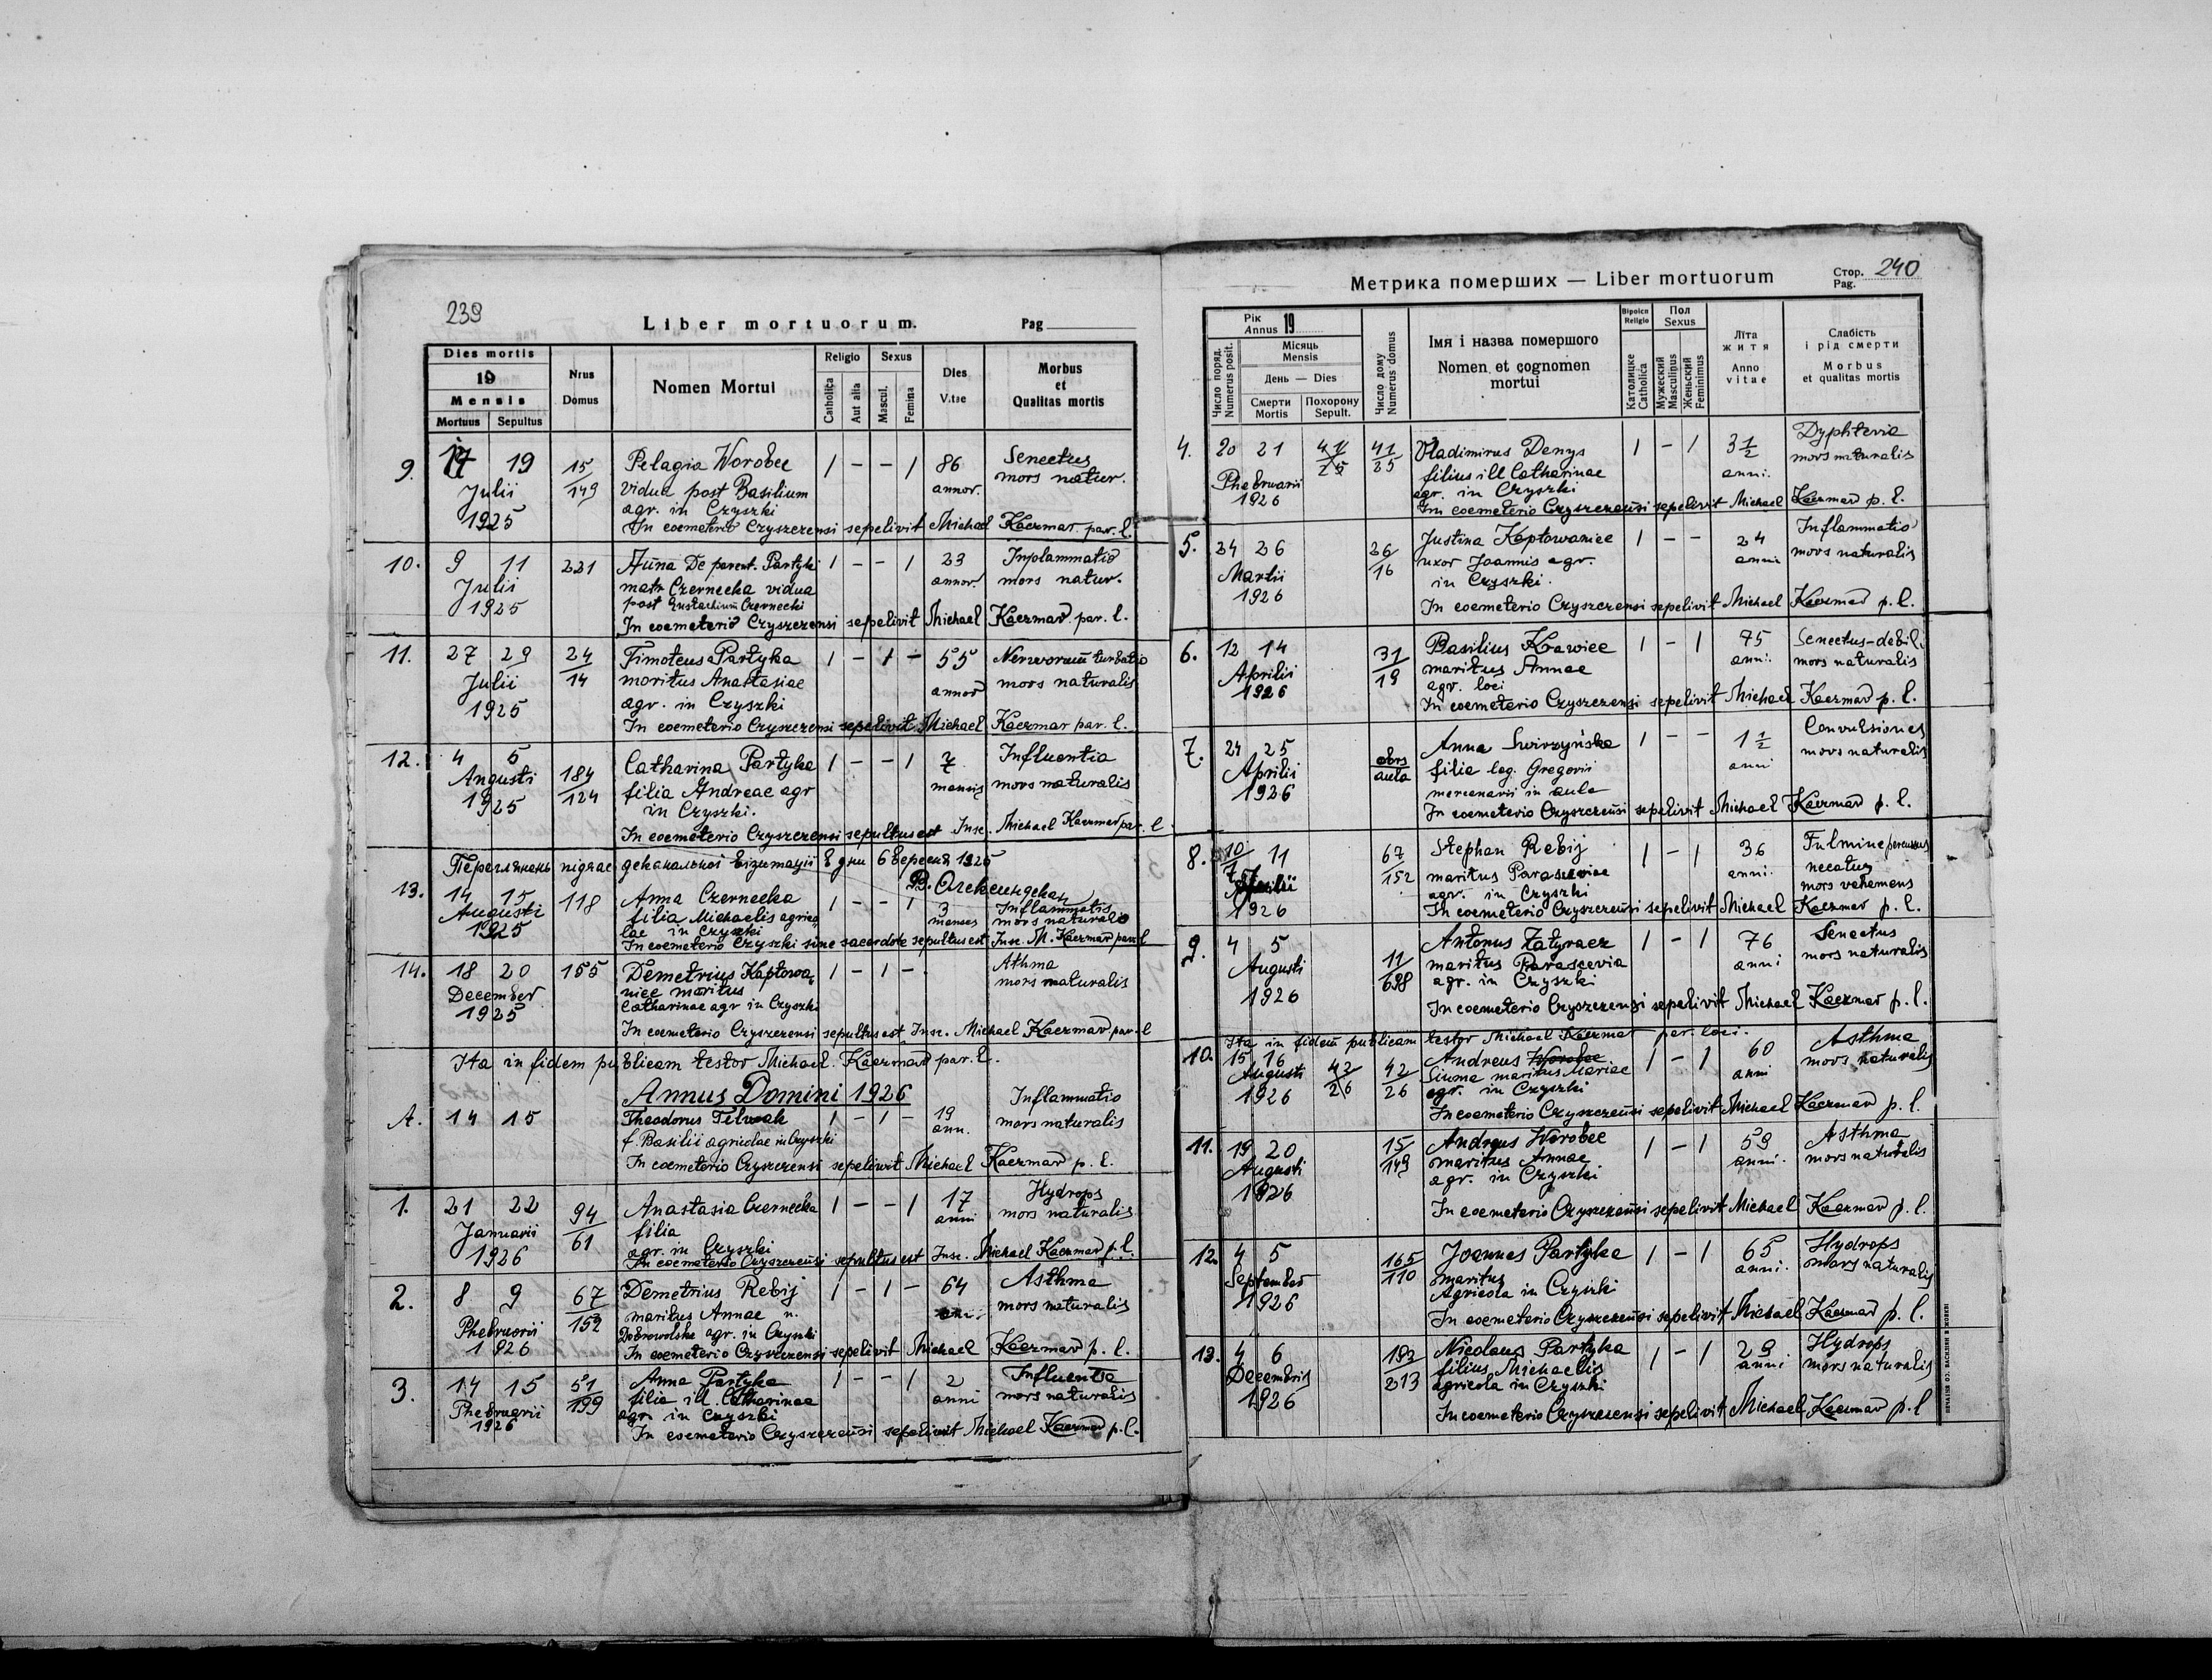 239
Liber mortuorum.
Pag
Dies mortis
19
Mensis
Mortuus Sepultus
Nrus Domus
Nomen Mortui
Religio
Catholica
Aut alta
Sexus
Mascul.
Femina
Dies V.tae
Morbus et Qualitas mortis
9. 17 19 15/149 Pelagia Worobec 1 – – 1 86 Senectus
Julii vidua post Basilium annor. mors natur.
1925 agr. in Czyszki
In coemeterio Czyszczensi sepelivit Michael Kaczmar. par. l.
10. 9 11 221 Anna De parent. Partyki 1 – – 1 23 Inflammatio
Julii matr Czernecka vidua annor. mors natur.
1925 post Eustachium Czernecki
In coemeterio Czyszczensi sepelivit Michael Kaczmar par. l.
11. 27 29 24/14 Timoteus Partyka 1 – 1 – 55 Nerworum turbatio
Julii moritus Anastasiae annor mors naturalis
1925 agr. in Czyszki
In coemeterio Czyszczensi sepelivit Michael Kaczmar par. l.
12. 4 5 184/124 Catharina Partyka 1 – – 1 7 Influentia
Augusti filia Andreae agr mensis mors naturalis
1925 in Czyszki.
In coemeterio Czyszczensi sepultus est Insc. Michael Kaczmar par. l
Переглянень підчас деканальної візитації в дни 6 вересня 1925
13. 14 15 118 Anna Czernecka 1 – – 1 3 Inflammatio
Augusti filia Michaelis agrico menses mors naturalis
1925 lae in Czyszki
In coemeterio Czyszki sine sacerdote sepultus est Insc. M. Kaczmar par. l
14. 18 20 155 Demetrius Kaptowa 1 – 1 – Athma
December niec moritus mors naturalis
1925 Catharinae agr in Czyszki
In coemeterio Czyszczensi sepultus est Insc. Michael Kaczmar par. l
Ita in fidem publicam testor Michael Kaczmar par. l.
Annus Domini 1926
A. 14 15 Theodorus Telwak 1 – 1 – 19 Inflammatio
f. Basilii agricolae in Czyszki ann. mors naturalis
In coemeterio Czyszczensi sepelivit Michael Kaczmar p. l.
1. 21 22 94/61 Anastasia Czernecka 1 – – 1 17 Hydrops
Januarii filia anni mors naturalis
1926 agr. in Czyszki
In coemeterio Czyszczensi sepultus est Insc. Michael Kaczmar p. l.
2. 8 9 67/152 Demetrius Rebij 1 – 1 – 64 Asthma
Phebruorii maritus Annae n. mors naturalis
1926 Dobrowolska agr. in Czyszki
In coemeterio Czyszczensi sepelivit Michael Kaczmar p. l.
3. 14 15 51/199 Anna Partyka 1 – – 1 2 Influentia
Phebruarii filia ill. Catharinae anni mors naturalis
1926 agr. in Czyszki
In coemeterio Czyszczensi sepelivit Michael Kaczmar p. l.
Метрика померших — Liber mortuorum
Стор. Pag. 240
Число поряд. Numerus posit.
Рік Annus 19
Місяць Mensis
День — Dies
Смерти Mortis
Похорону Sepult.
Число дому Numerus domus
Імя і назва помершого
Nomen et cognomen mortui
Віроісп Religio
Католицке Catholica
Пол Sexus
Мужеский Masculinus
Женьский Feminimus
Літа житя
Anno vitae
Слабість і рід смерти
Morbus et qualitas mortis
4. 20 21 41/25 41/25 Vladimirus Denys 1 – 1 3 1/2 Dyphteria
Phebruarii filius ill Catharinae anni. mors naturalis
1926 agr. in Czyszki
In coemeterio Czyszczensi sepelivit Michael Kaczmar p. l.
5. 24 26 26/16 Justina Koptowaniec 1 – – 24 Inflammatio
Martii uxor Joannis agr. anni mors naturalis
1926 in Czyszki.
In coemeterio Czyszczensi sepelivit Michael Kaczmar p. l.
6. 12 14 31/19 Basilius Krawiec 1 – 1 75 Senectus-debil.
Aprilis maritus Annae anni. mors naturalis
1926 agr. loci
In coemeterio Czyszczensi sepelivit Michael Kaczmar p. l.
7. 24 25 obrs/aula Anna Swirzyńska 1 – – 1 1/2 Convulsiones
Aprilii filia leg. Gregorii anni mors naturalis
1926 mercenarii in aula
In coemeterio Czyszczensi sepelivit Michael Kaczmar p. l.
8. 10 11 67/152 Stephan Rebij 1 – 1 36 Fulmine percussus
maritus Parasceviae anni. necatus
1926 agr. in Czyszki mors vehemens
In coemeterio Czyszczensi sepelivit Michael Kaczmar p. l.
9. 4 5 11/698 Antonus Tatyracz 1 – 1 76 Senectus
Augusti maritus Parascevia anni mors naturalis
1926 agr. in Czyszki
In coemeterio Czyszczensi sepelivit Michael Kaczmar p. l.
Ita in fidem publicam testor Michael Kaczmar par. loci.
10. 15 16 42/26 42/26 Andreus Worobec 1 – 1 60 Asthma
Augusti Siuma maritus Mariae anni mors naturalis
1926 agr. in Czyszki
In coemeterio Czyszczensi sepelivit Michael Kaczmar p. l.
11. 19 20 15/149 Andreus Worobec 1 – 1 59 Asthma
Augusti maritus Annae anni. mors naturalis
1926 agr. in Czyszki
In coemeterio Czyszczensi sepelivit Michael Kaczmar p. l.
12. 4 5 165/110 Joannes Partyka 1 – 1 65 Hydrops
September maritus anni. mors naturalis
1926 Agricola in Czyszki
In coemeterio Czyszczensi sepelivit Michael Kaczmar p. l.
13. 4 6 183/213 Nicolaus Partyka 1 – 1 29 Hydrops
Decembris filius Michaelis anni mors naturalis
1926 agricola in Czyszki
In coemeterio Czyszczensi sepelivit Michael Kaczmar p. l